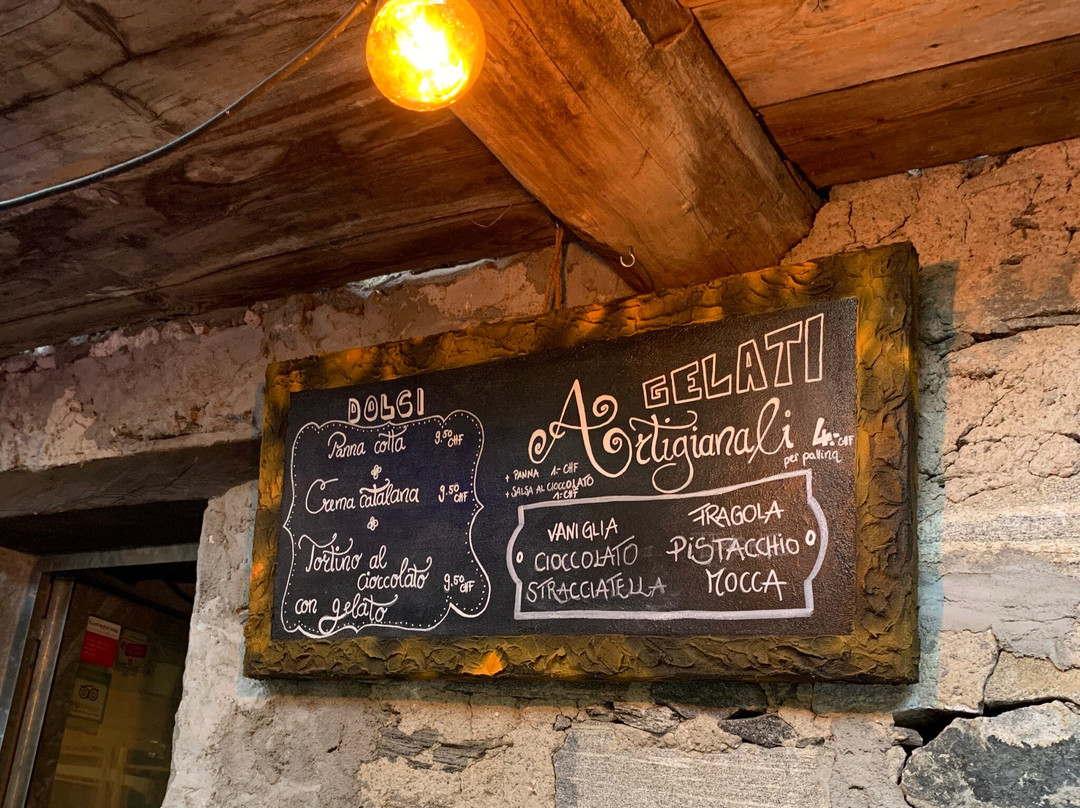 DOLCI
Panna cotta 9.50 CHF
Crema catalana 9.50 CHF
Tortino al
cioccolato
con gelato 9.50 CHF
GELATI
Artigianali 4.- CHF
per pallina
+ PANNA 1.- CHF
+ SALSA AL CIOCCOLATO
1.- CHF
VANIGLIA
CIOCCOLATO
STRACCIATELLA
FRAGOLA
PISTACCHIO
MOCCA